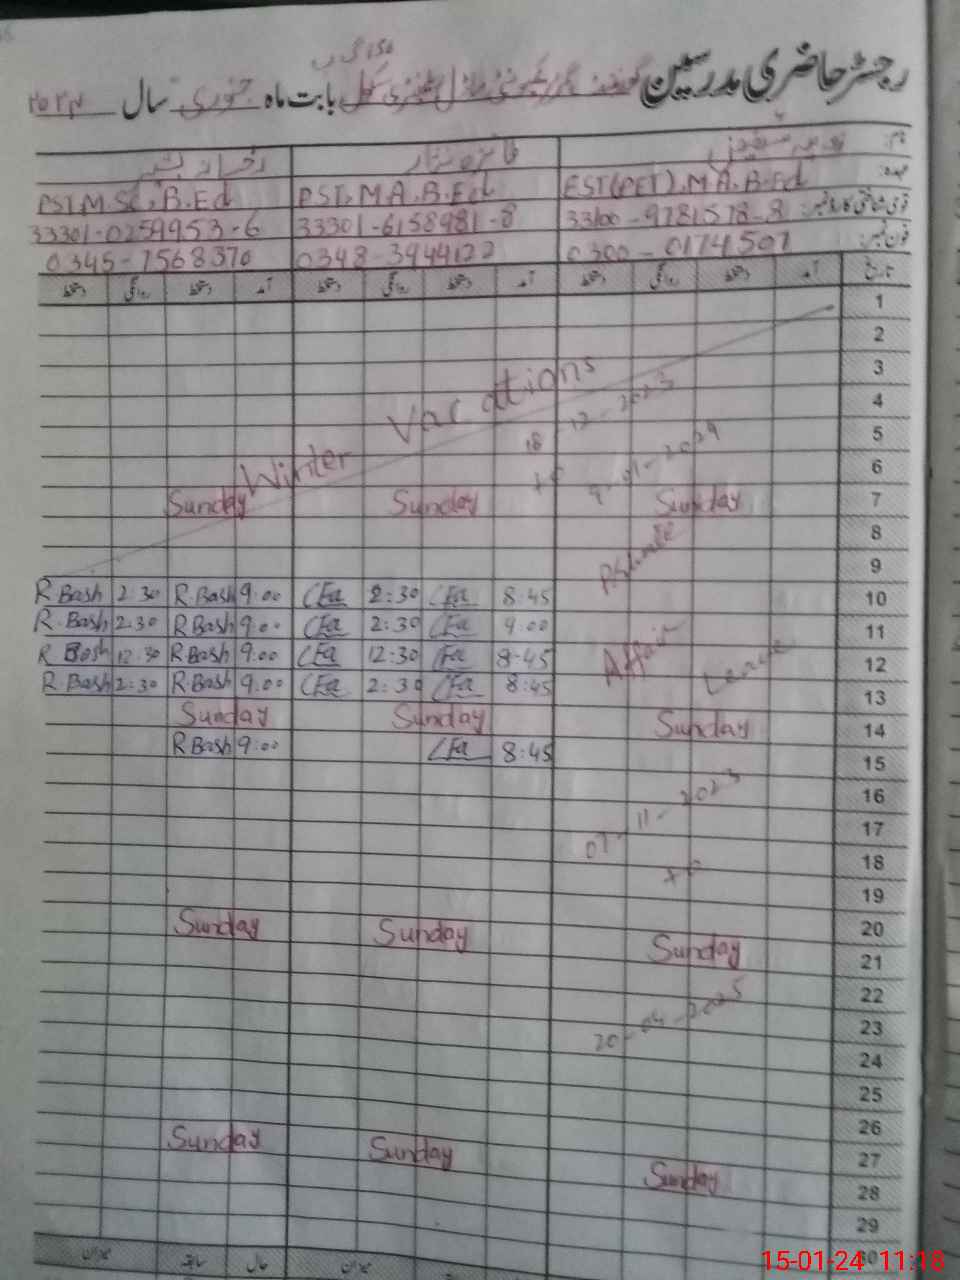 رجسٹر حاضری مدرسین گورنمنٹ گرلز کمیونٹی ماڈل ایلیمنٹری سکول بابت ماہ جنوری سال ۲۰۲۴
نام:
EST(PET), M.A, B.Ed PST, M.A, B.Ed PST, M.Sc, B.Ed
قومی شناختی کارڈ نمبر: 33100-9781578-8 33301-6158981-8 33301-0259953-6
فون نمبر: 0300-0174507 0348-3944122 0345-7568370
تاریخ آمد دستخط روانگی دستخط آمد دستخط روانگی دستخط آمد دستخط روانگی دستخط
1
2
3
4
5
6
7
8
9
10
11
12
13
14
15
16
17
18
19
20
21
22
23
24
25
26
27
28
29
30
Winter Vacations
18-12-2023
to
9-01-2024
Sunday Sunday Sunday
R.Bash 2:30 R.Bash 9:00 Fa 2:30 Fa 8:45
R.Bash 2:30 R.Bash 9:00 Fa 2:30 Fa 9:00
R.Bash 12:30 R.Bash 9:00 Fa 12:30 Fa 8:45
R.Bash 2:30 R.Bash 9:00 Fa 2:30 Fa 8:45
Affair
Leave
Sunday Sunday Sunday
R.Bash 9:00 Fa 8:45
07-11-2023
to
Sunday Sunday Sunday
20-04-2025
Sunday Sunday Sunday
میزان سابقہ حال میزان
15-01-24 11:18